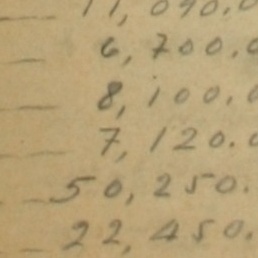 11,090.0
6,700.0
8,100.0
7,120.0
50,250.
22,450.